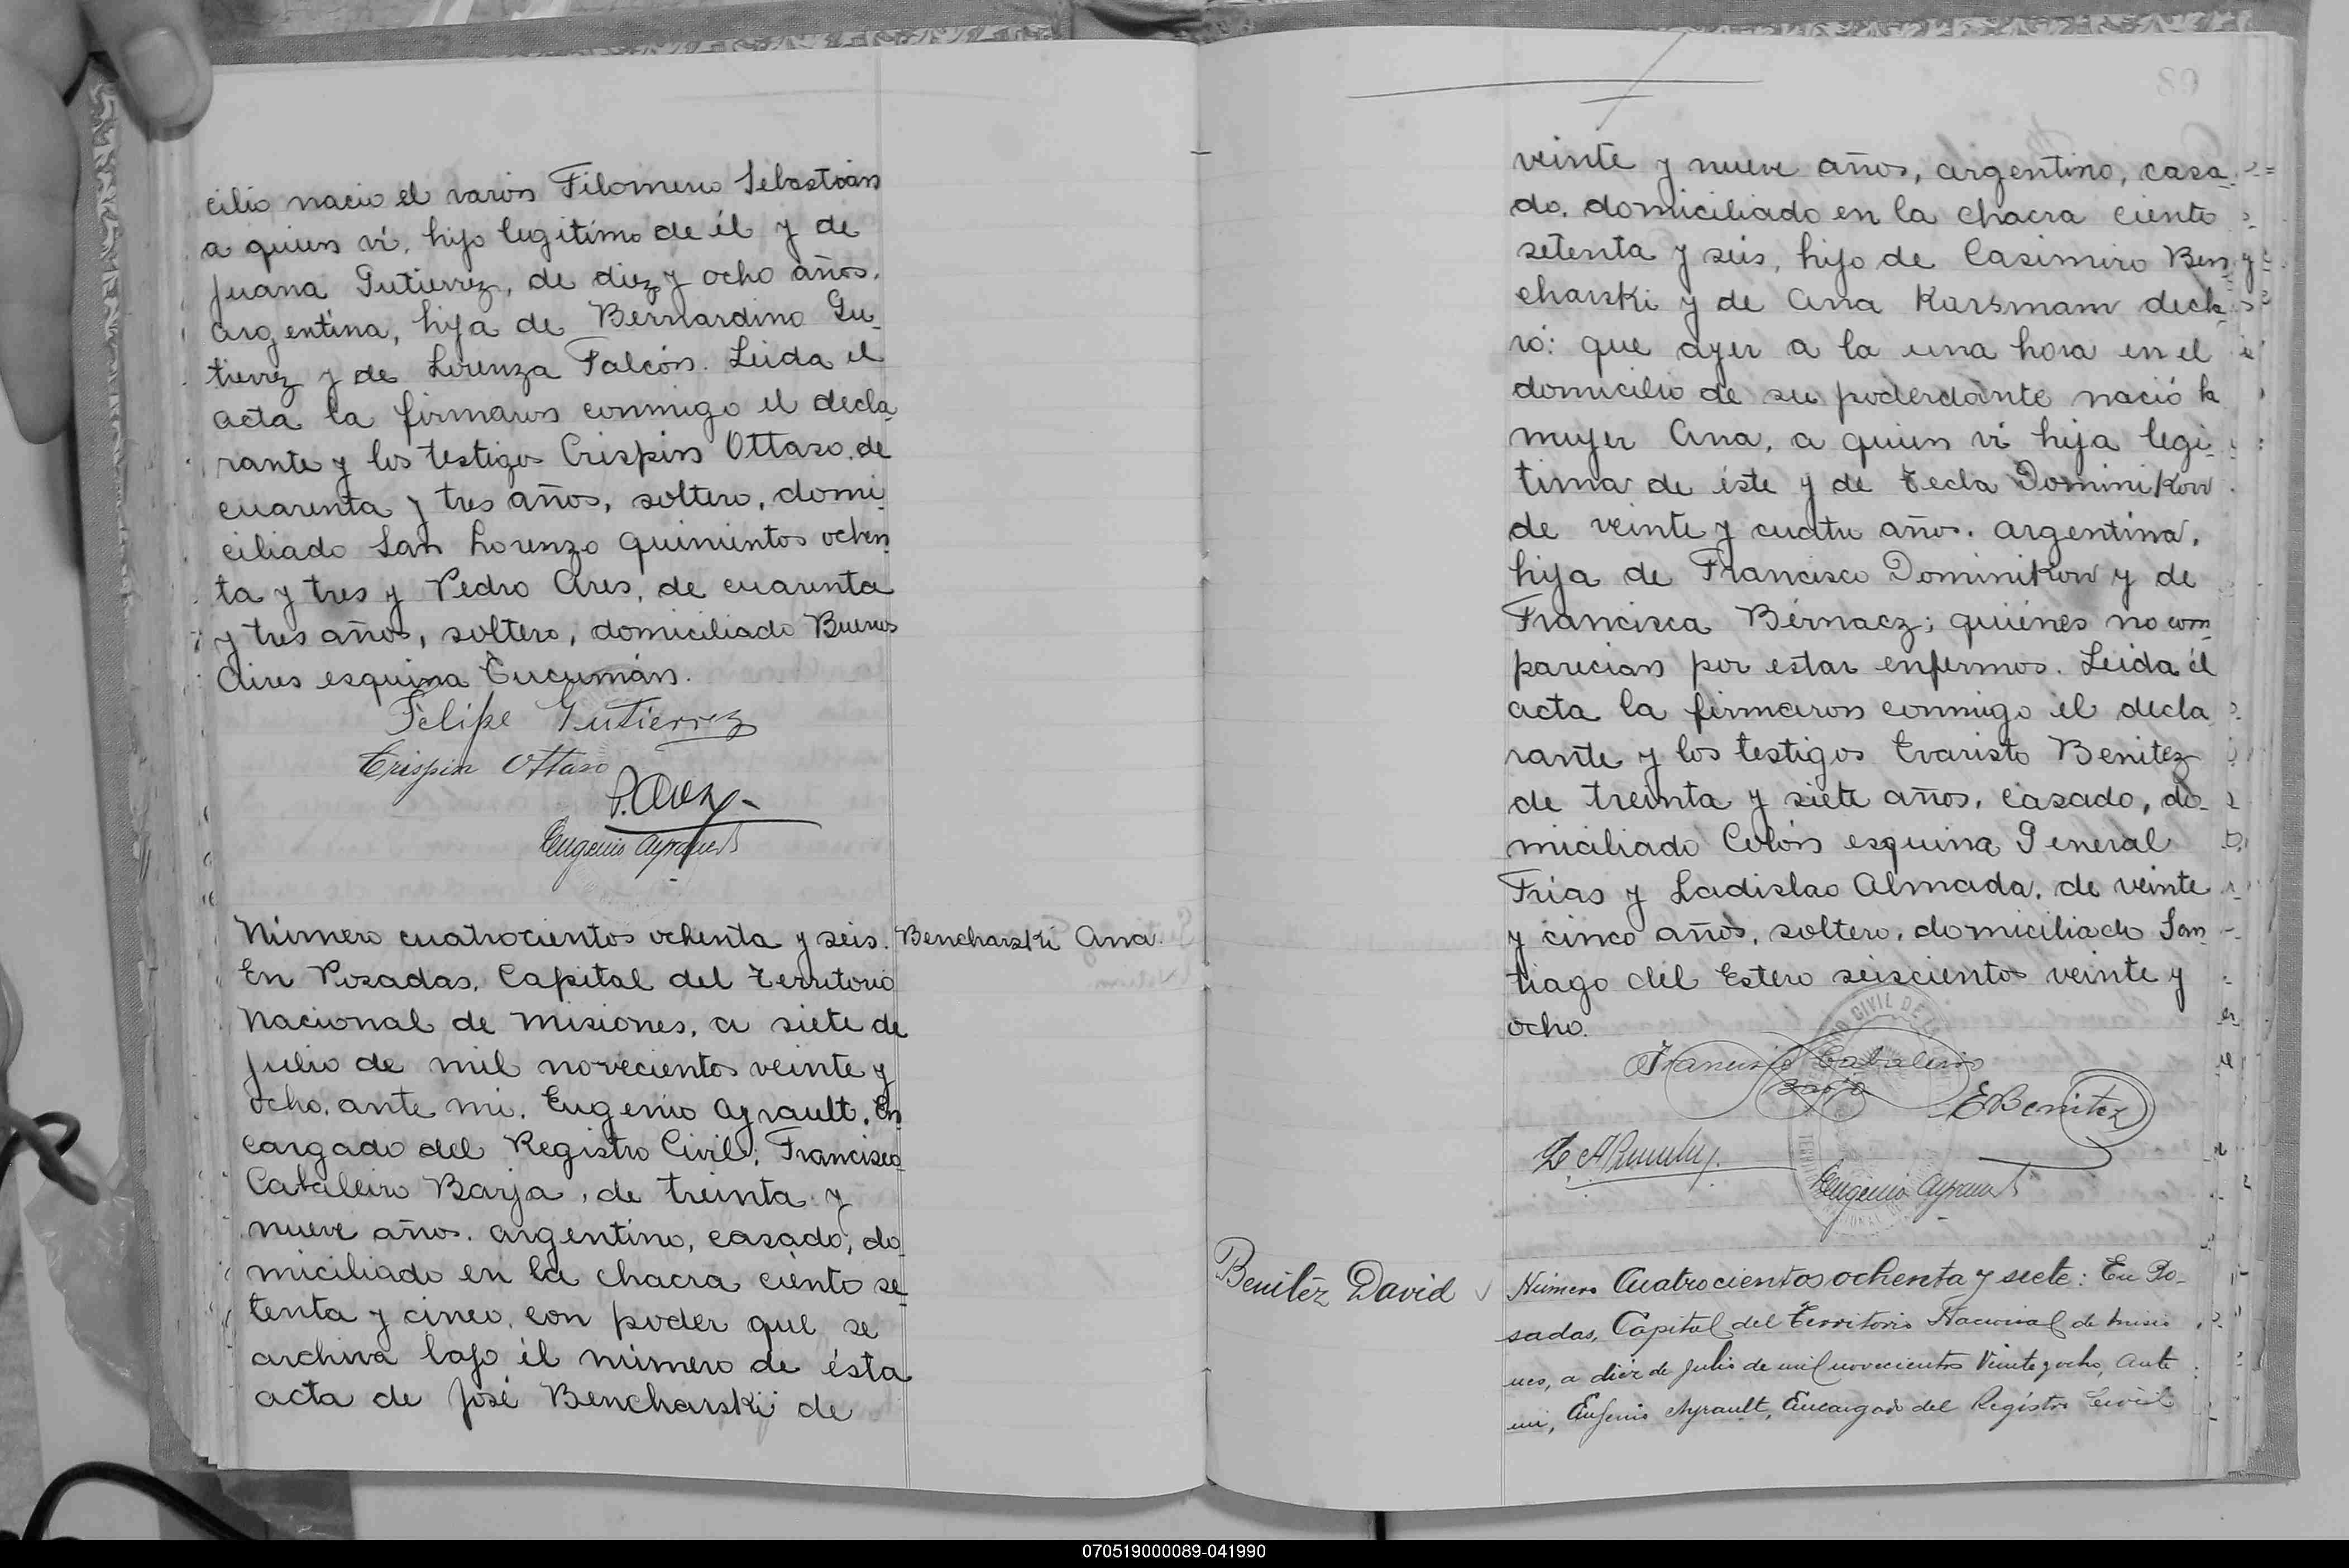 cilio nacio el varón Filomeno Sebastian
a quien vi, hijo legitimo de él y de
Juana Gutierrez, de diez y ocho años,
argentina, hija de Bernardino Gu-
tierrez y de Lorenza Falcón. Leida el
acta la firmaron conmigo el decla-
rante y los testigos Crispin Ottaso, de
cuarenta y tres años, soltero, domi-
ciliado San Lorenzo quinientos ochen-
ta y tres y Pedro Ares, de cuarenta
y tres años, soltero, domiciliado Buenos
Aires esquina Tucumán.
Felipe Gutierrez
Crispin Ottaso
Eugenio Ayrault
Número cuatrocientos ochenta y seis.
Bencharski Ana.
En Posadas, Capital del Territorio
Nacional de Misiones, a siete de
Julio de mil novecientos veinte y
ocho, ante mi, Eugenio Ayrault, En-
cargado del Registro Civil; Francisco
Cabaleiro Barja, de treinta y
nueve años, argentino, casado, do-
miciliado en la chacra ciento se-
tenta y cinco, con poder que se
archiva bajo él número de ésta
acta de José Bencharski de
89
veinte y nueve años, argentino, casa-
do, domiciliado en la chacra ciento
setenta y seis, hijo de Casimiro Ben-
charski y de Ana Kursmam decla-
ró: que ayer a la una hora en el
domicilio de su poderdante nació la
mujer Ana, a quien vi hija legi-
tima de éste y de Tecla Dominikow
de veinte y cuatro años, argentina,
hija de Francisco Dominikow y de
Francisca Bérnacz; quiénes no com-
parecian por estar enfermos. Leida él
acta la firmaron conmigo él decla-
rante y los testigos Evaristo Benitez
de treinta y siete años, casado, do-
miciliado Colón esquina General
Frias y Ladislao Almada, de veinte
y cinco años, soltero, domiciliado San-
tiago del Estero seiscientos veinte y
ocho.
Francisco Cabaleiro
Barja
E Benitez
Eugenio Ayrault
Benitez David
Número Cuatrocientos ochenta y siete: En Po-
sadas, Capital del Territorio Nacional de Misio
nes, a diéz de Julio de mil novecientos Veinte y ocho, Ante
mi, Eugenio Ayrault, Encargado del Registro Civil
070519000089-041990